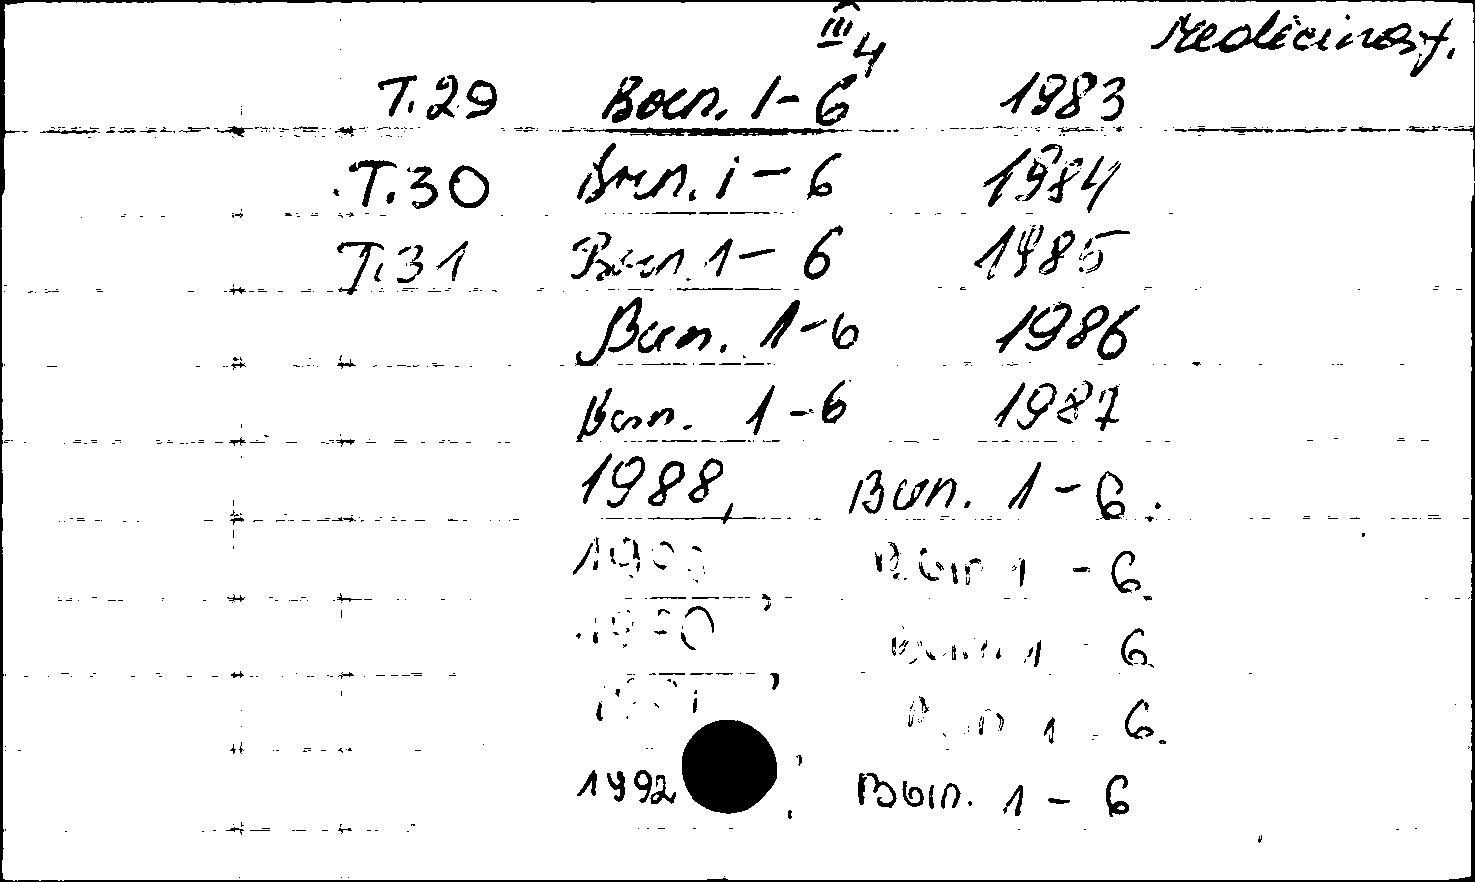 III 4 Medicinas f.
T.29 Вып. 1-6 1983
T.30 Вып. 1-6 1984
T.31 Вып. 1-6 1985
Вып. 1-6 1986
Вып. 1-6 1987
1988, Вып. 1-6.
1989, Вып 1-6.
1990, Вып. 1-6.
1991, Вып 1-6.
1992, Вып. 1-6